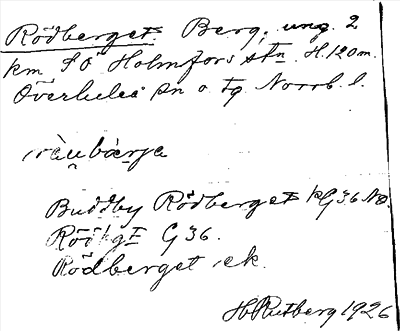 Rödberget Berg, ung. 2
km SO Holmfors stn. H. 120 m.
Överluleå sn o. tg Norrb. l.
ràu̯bàrja
Buddby Rödberget kG 36 NO.
Röd bgt G 36.
Rödberget ek.
H Rutberg 1926